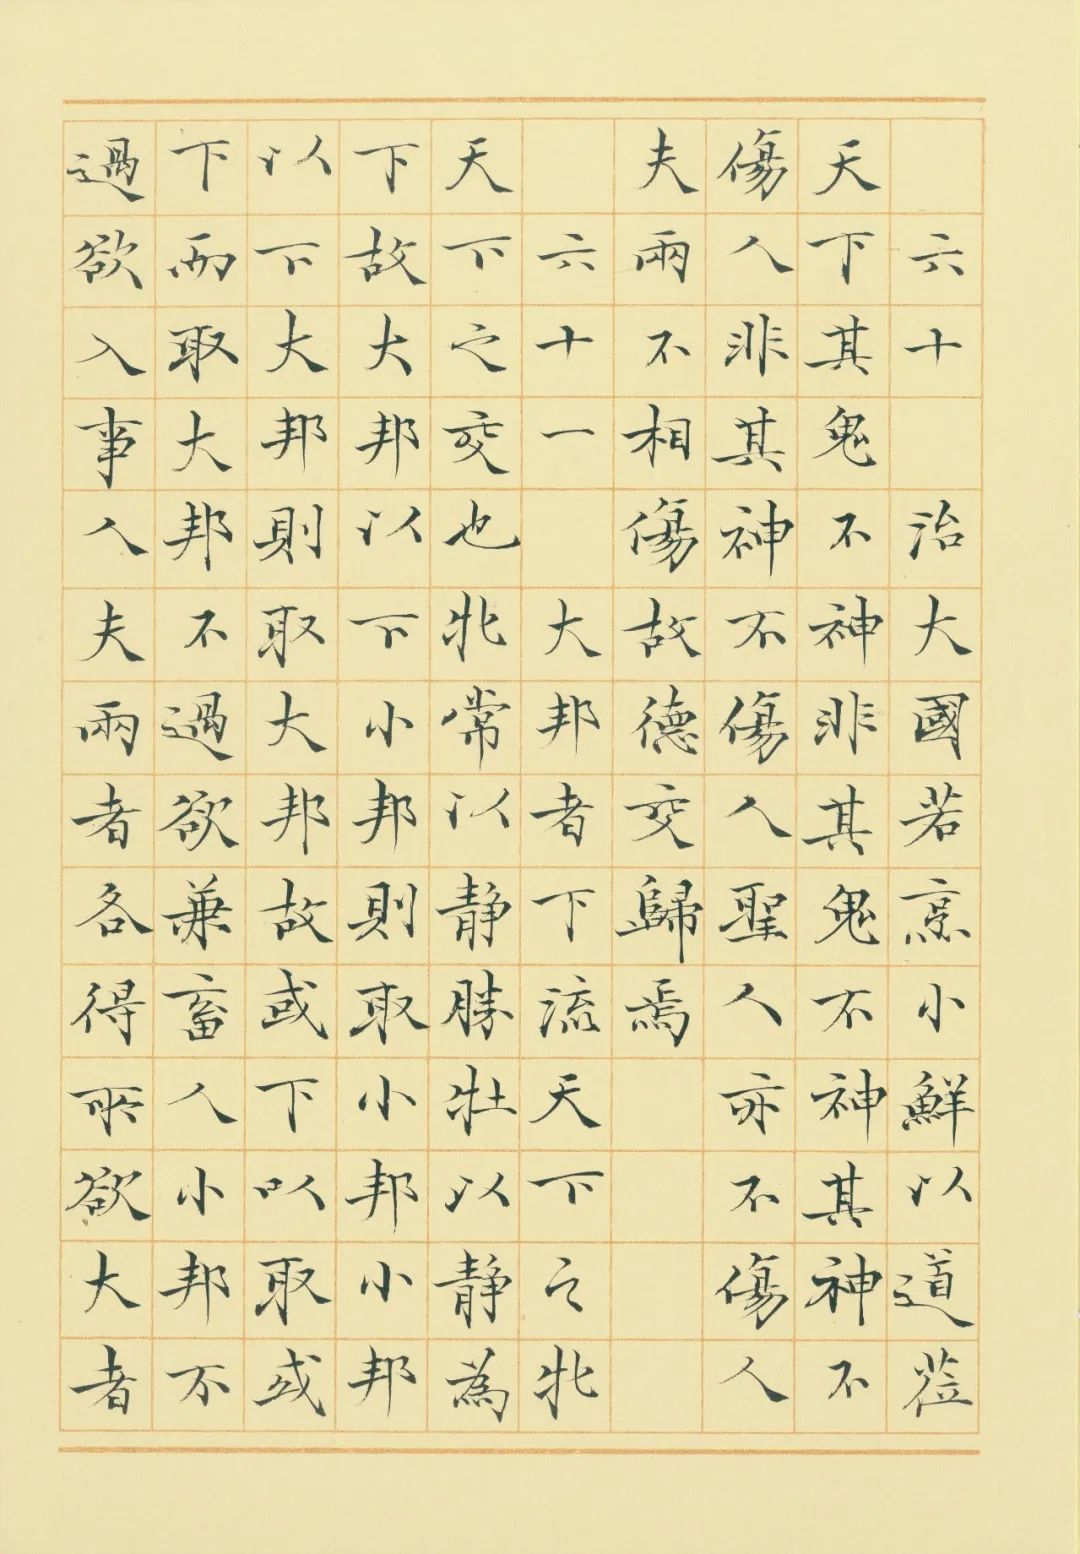 六十 治大國若烹小鮮以道莅
天下其鬼不神非其鬼不神其神不
傷人非其神不傷人聖人亦不傷人
夫兩不相傷故德交歸焉
六十一 大邦者下流天下之牝
天下之交也牝常以靜勝牡以靜為
下故大邦以下小邦則取小邦小邦
以下大邦則取大邦故或下以取或
下而取大邦不過欲兼畜人小邦不
過欲入事人夫兩者各得所欲大者